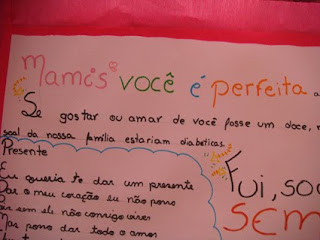 Mamis você é perfeita a
Se gostar ou amar de você fosse um doce, m
soal da nossa família estariam diabéticas.
Presente
Fui, soc
Eu queria te dar um presente
SEM
Dar o meu coração eu não posso
sem ele não consigo viver
Mas posso dar todo o amor